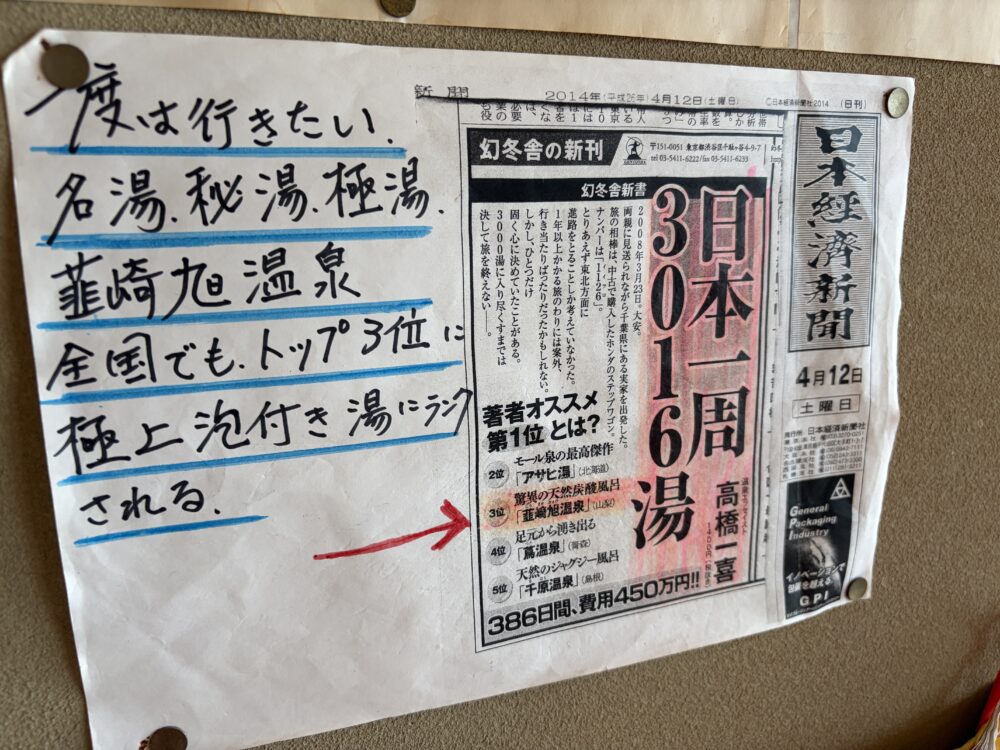 一度は行きたい.
名湯、秘湯、極湯.
韮崎旭温泉
全国でも、トップ3位に
極上泡付き湯にランク
される.
新聞
2014年(平成26年)4月12日(土曜日)
©日本経済新聞社2014
(日刊)
幻冬舎の新刊
〒151-0051 東京都渋谷区千駄ヶ谷4-9-7
tel 03-5411-6222/fax 03-5411-6233
幻冬舎新書
日本一周
3016湯
高橋一喜
1400円(税抜き)
2008年3月23日。大安。
両親に見送られながら千葉県にある実家を出発した。
旅の相棒は、中古で購入したホンダのステップワゴン。
ナンバーは「1126」。
とりあえず東北方面に
進路をとることしか考えていなかった。
1年以上かかる旅のわりには案外、
行き当たりばったりだったかもしれない。
しかし、ひとつだけ
固く心に決めていたことがある。
3000湯に入り尽くすまでは
決して旅を終えない――。
著者オススメ
第1位 とは?
2位 モール泉の最高傑作
「アサヒ湯」(北海道)
3位 驚異の天然炭酸風呂
「韮崎旭温泉」(山梨)
4位 足元から湧き出る
「蔦温泉」(青森)
5位 天然のジャグジー風呂
「千原温泉」(島根)
386日間、費用450万円!!
日本経済新聞
4月12日
土曜日
発行所 日本経済新聞社
General
Packaging
Industry
イノベーションで
包装を超える。
GPI